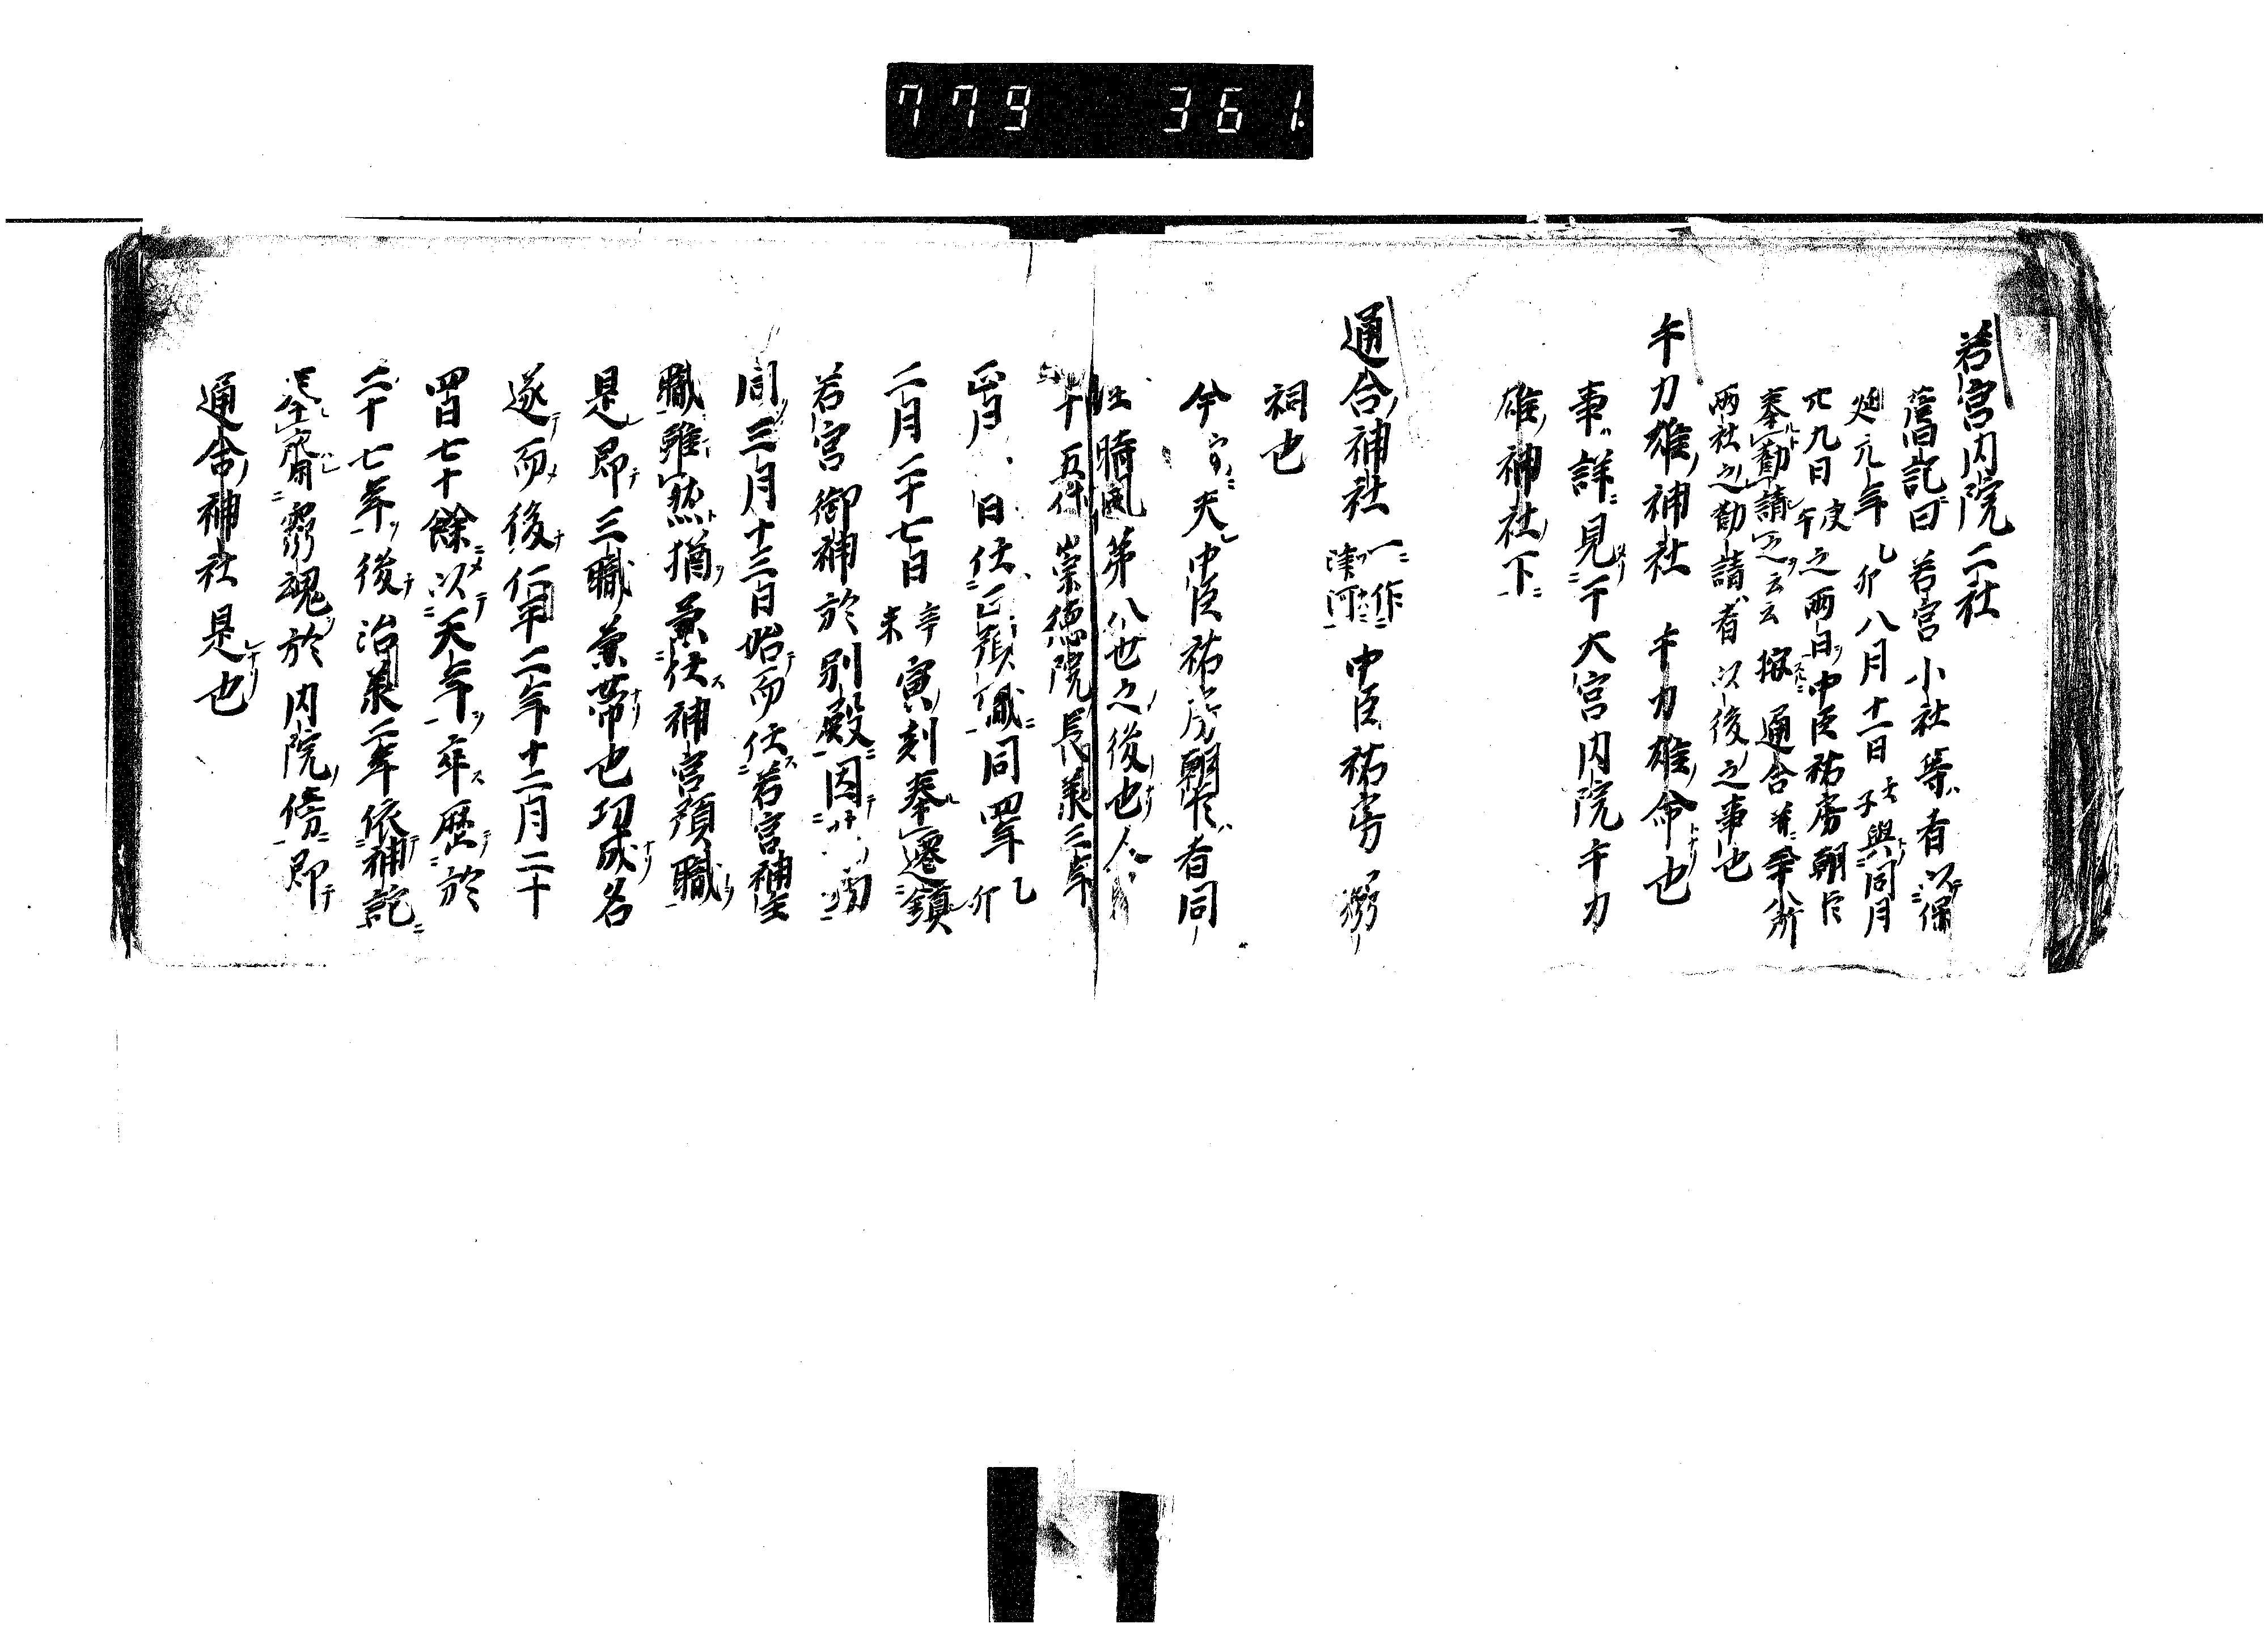 779 361
若宮内院二社
舊記曰若宮小社等者以保
延元年乙卯八月十一日壬子與同月
廿九日庚午之両日中臣祐房朝臣
奉勸請之云云按通合并
両社之勸請者以後之事也
手力雄神社 手力雄命也
事詳見于大宮内院手力
雄神社下
通合神社 一作津河 中臣祐房
祠也
今 天中臣祐房朝臣者同
姓時風第八世之後也
十五代崇徳院長承三年
正月 日任正預職同四年乙卯
二月二十七日辛未寅刻奉遷鎮
若宮御神於別殿因
同三月十三日始而任若宮神主
職雖然猶兼任神宮預職
是即三職兼帯也功成名
遂而後仁平二年十二月二十
四日七十餘以天年卒歴於
二十七年後治承二年依神託
奉齋霊魂於内院傍即
通合神社是也